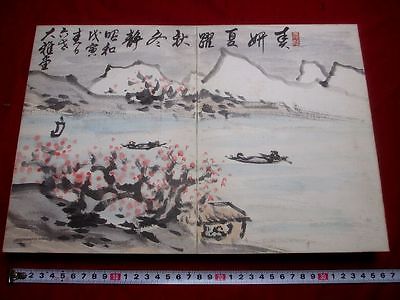 春妍夏躍秋冬静
昭和
戊寅
春日
大雅堂
1 2 3 4 5 6 7 8 9 10 1 2 3 4 5 6 7 8 9 20 1 2 3 4 5 6 7 8 9 30 1 2 3 4 5 6